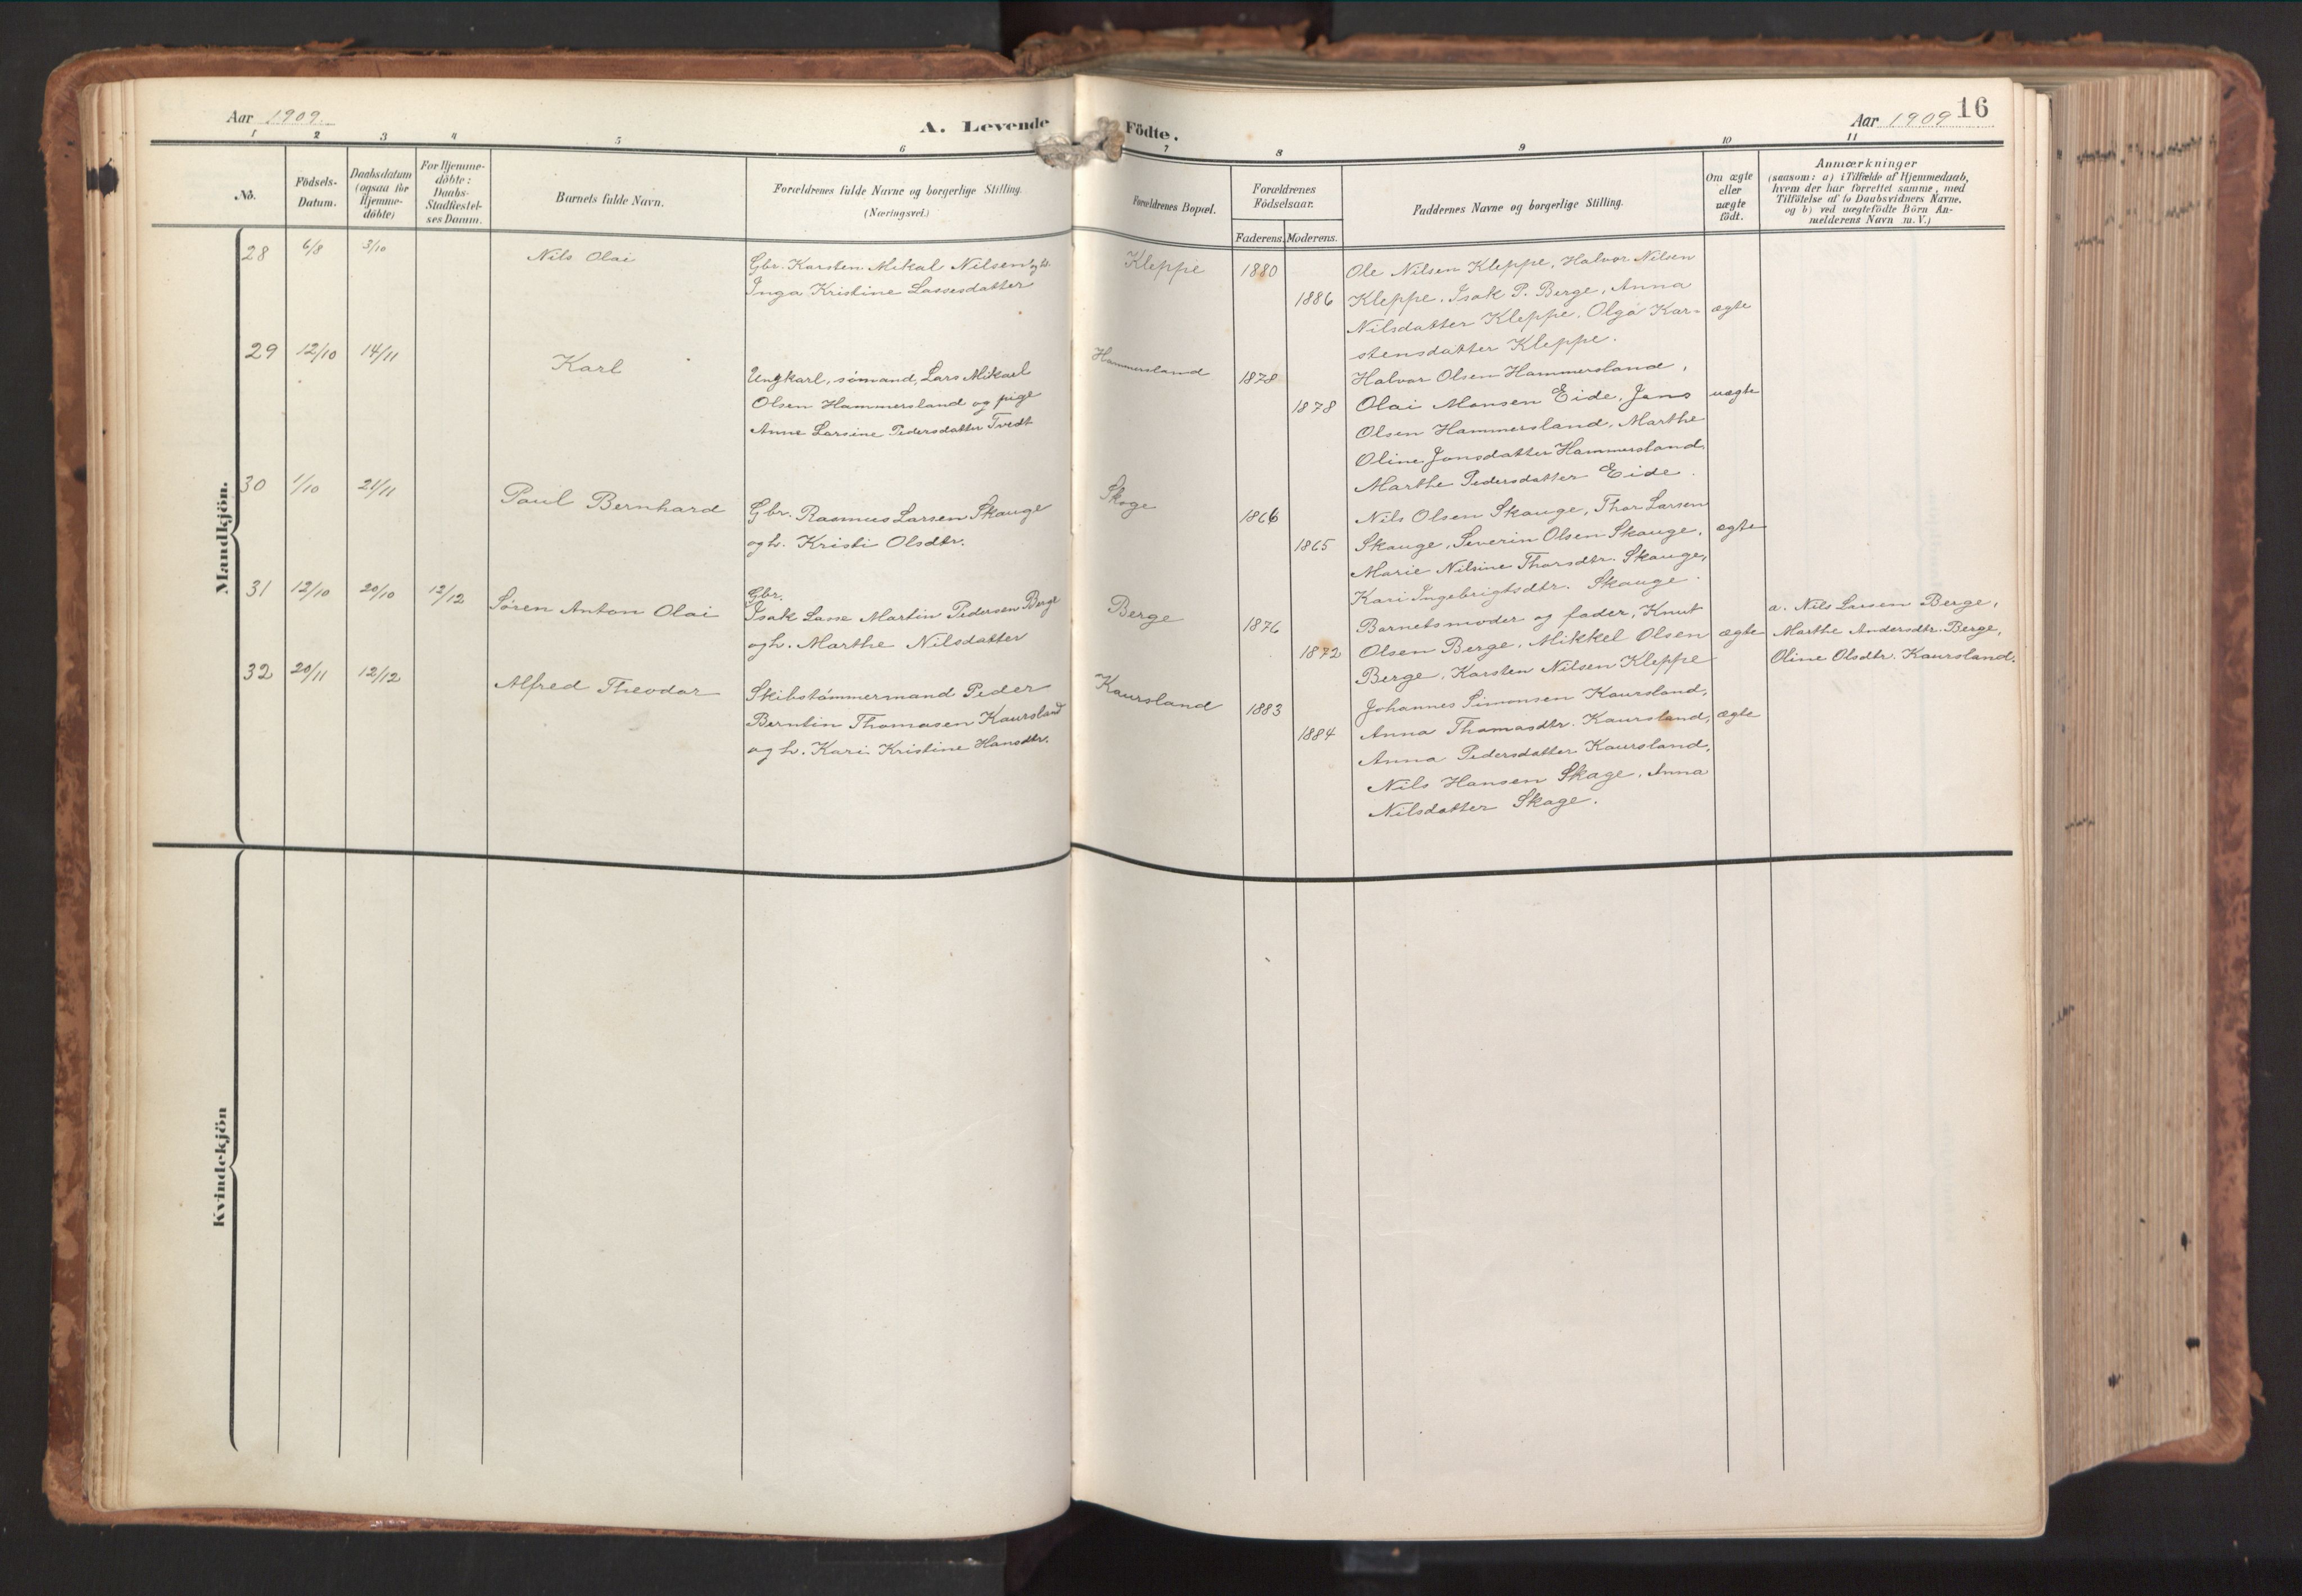 Aar 1909.
A. Levende Födte.
Aar 1909 16
1 2 3 4 5 6 7 8 9 10 11
No.
Födsels-
Datum.
Daabsdatum
(ogsaa for
Hjemme-
döbte)
For Hjemme-
döbte:
Daabs-
Stadfæstel-
ses Datum.
Barnets fulde Navn.
Forældrenes fulde Navne og borgerlige Stilling.
(Næringsvei.)
Forældrenes Bopæl.
Forældrenes
Födselsaar.
Faderens. Moderens.
Faddernes Navne og borgerlige Stilling.
Om ægte
eller
uægte
födt.
Anmærkninger
(saasom: a) i Tilfælde af Hjemmedaab,
hvem der har forrettet samme, med
Tilföielse af to Daabsvidners Navne,
og b) ved uægtefödte Börn An-
melderens Navn m. V.)
Mandkjön.
28 6/8 3/10
Nils Olai
Gbr. Karsten Mikal Nilsen og h.
Inga Kristine Lassesdatter
Kleppe
1880
1886
Ole Nilsen Kleppe, Halvor Nilsen
Kleppe, Isak P. Berge, Anna
Nilsdatter Kleppe, Olga Kar-
stensdatter Kleppe.
ægte
29 12/10 14/11
Karl
Ungkarl, sömand, Lars Mikael
Olsen Hammersland og pige
Anne Larsine Pedersdatter Tvedt
Hammersland
1878
1878
Halvor Olsen Hammersland,
Olai Monsen Eide, Jens
Olsen Hammersland, Marthe
Oline Jonsdatter Hammersland
Marthe Pedersdatter Eide.
uægte
30 1/10 21/11
Paul Bernhard
Gbr. Rasmus Larsen Skauge
og h. Kristi Olsdtr.
Skoge
1866
1865
Nils Olsen Skauge, Thor Larsen
Skauge, Severin Olsen Skauge,
Marie Nilsine Thorsdtr. Skauge,
Kari Ingebrigtsdtr. Skauge.
ægte
31 12/10 20/10 12/12
Sören Anton Olai
Gbr.
Isak Lasse Martin Pedersen Berge
og h. Marthe Nilsdatter
Berge
1876
1872
Barnets moder og fader, Knut
Olsen Berge, Mikkel Olsen
Berge, Karsten Nilsen Kleppe
ægte
a. Nils Larsen Berge,
Marthe Andersdtr. Berge,
Oline Olsdtr. Kaursland.
32 20/11 12/12
Alfred Theodor
Skibstömmermand Peder
Berntin Thomasen Kaursland
og h. Kari Kristine Hansdtr.
Kaursland
1883
1884
Johannes Simonsen Kaursland,
Anna Thomasdtr. Kaursland,
Anna Pedersdatter Kaursland,
Nils Hansen Skage, Anna
Nilsdatter Skage.
ægte
Kvindekjön